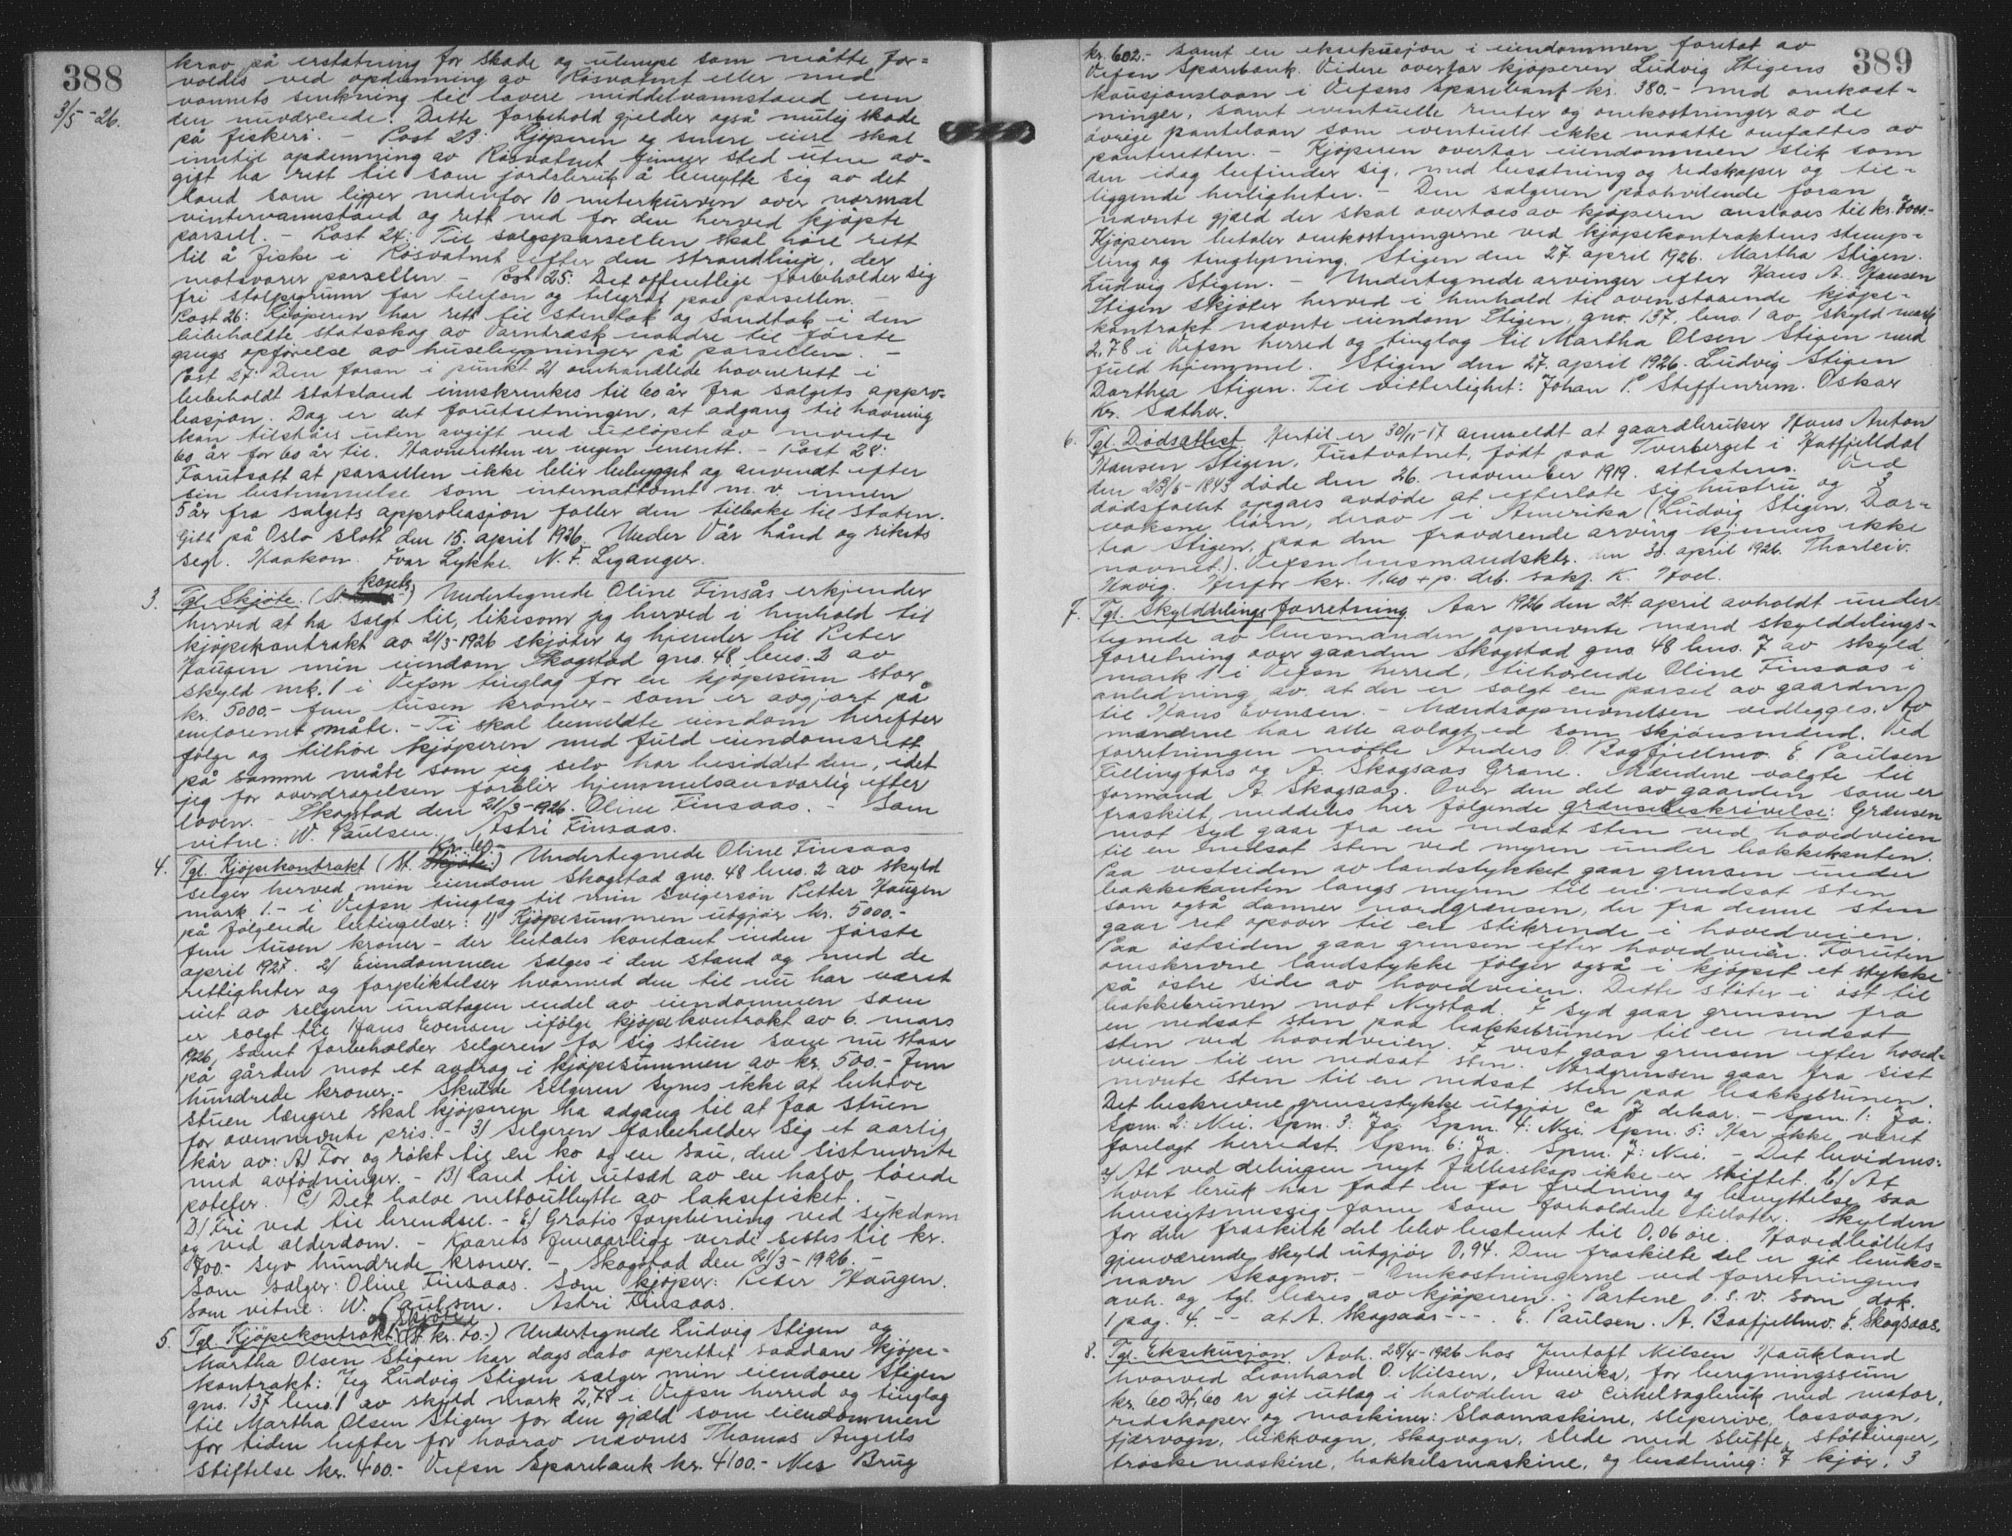 388
3/5-26.
krav på erstatning for skade og ulempe som måtte for-
voldes ved opdemning av Røsvatnet eller med
vannets senkning til lavere middelvannstand enn
den nuværende. Dette forbehold gjelder også mulig skade
på fiskeri. - Post 23: Kjøperen og senere eiere skal
inntil opdemning av Røsvatnet finner sted uten av-
gift ha rett til som jordsbruk å benytte sig av det
land som ligger nedenfor 10 meterkurven over normal
vintervannstand og rett ned for den herved kjøpte
parsell. - Post 24: Til salgsparsellen skal høre rett
til å fiske i Røsvatnet efter den strandlinje, der
motsvarer parsellen - Post 25. Det offentlige forbeholder sig
fri stolpegrunn for telefon og telegraf paa parsellen. -
Post 26: Kjøperen har rett til stentak og sandtak i den
beibeholdte statsskog av Varntræsk nordre til første
gangs opførelse av husebygninger på parsellen. -
Post 27: Den foran i punkt 21 omhandlede havnerett i
beibeholdt statsland innskrenkes til 60 år fra salgets appro-
basjon. Dog er det forutsetningen, at adgang til havning
kan tilståes uten avgift ved utløpet av nevnte
60 år for 60 år til. Havneretten er ingen enerett. - Post 28:
Forutsatt at parsellen ikke blir bebygget og anvendt efter
sin bestemmelse som internattomt m. v. innen
5 år fra salgets approbasjon faller den tilbake til staten.
Gitt på Oslo slott den 15. april 1926. Under Vår hånd og rikets
segl. Haakon. Ivar Lykke. N. F. Leganger.
3. Tgl. Skjøte. (St. ) Undertegnede Oline Finsås erkjender
herved at ha solgt til, likesom jeg herved i henhold til
kjøpekontrakt av 21/3-1926 skjøter og hjemler til Peter
Haugen min eiendom Skogstad gno. 48 bno. 2 av
skyld mk. 1 i Vefsn tinglag for en kjøpesum stor
kr. 5000.- fem tusen kroner - som er avgjort på
omforenet måte. - Ti skal bemeldte eiendom herefter
følge og tilhøre kjøperen med fuld eiendomsrett
på samme måte som jeg selv har besiddet den, idet
jeg for overdragelsen forblir hjemmelsansvarlig efter
loven. - Skogstad den 21/3-1926. Oline Finsaas. - Som
vitne: W. Paulsen. Astri Finsaas.
4. Tgl. Kjøpekontrakt (St. ) Undertegnede Oline Finsaas
selger herved min eiendom Skogstad gno. 48 bno. 2 av skyld
mark 1.- i Vefsn tinglag til min svigersøn Petter Haugen
på følgende betingelser: 1) Kjøpesummen utgjør kr. 5000.-
fem tusen kroner - der betales kontant inden første
april 1927. 2) Eiendommen sælges i den stand og med de
rettigheter og forpliktelser hvormed den til nu har været
eiet av selgeren undtagen endel av eiendommen som
er solgt til Hans Evensen ifølge kjøpekontrakt av 6. mars
1926, samt forbeholder selgeren for sig stuen som nu staar
på gården mot et avdrag i kjøpesummen av kr. 500.- fem
hundrede kroner. - Skulde selgeren synes ikke at behøve
stuen længere skal kjøperen ha adgang til at faa stuen
for ovennevnte pris. - 3) Selgeren forbeholder sig et aarlig
kår av: A) For og røkt til en ko og en sau, den sistnevnte
med avfødninger. - B) Land til utsæd av en halv tønde
poteter. C) Det halve nettoutbytte av laksefisket.
D) Fri ved til brendsel. - E) Gratis forpleining ved sykdom
og ved alderdom. - Kaarets femaarlige verdi settes til kr.
700.- syv hundrede kroner. - Skogstad den 21/3-1926. -
Som sælger: Oline Finsaas. Som kjøper: Peter Haugen.
Som vitne: W. Paulsen. Astri Finsaas.
og skjøte
5. Tgl. Kjøpekontrakt (St. kr. 10.-) Undertegnede Ludvig Stigen og
Martha Olsen Stigen har dags dato oprettet saadan kjøpe-
kontrakt: Jeg Ludvig Stigen sælger min eiendom Stigen
gno. 137 bno. 1 av skyld mark 2,78 i Vefsn herred og tinglag
til Martha Olsen Stigen for den gjæld som eiendommen
for tiden hefter for hvorav nævnes Thomas Angells
stiftelse kr. 400.- Vefsn Sparebank kr. 4100.- Mes Brug
389
kr. 602.- samt en eksekusjon i eiendommen foretat av
Vefsn Sparebank. Videre overtar kjøperen Ludvig Stigens
kausjonslaan i Vefsens sparebank kr. 380.- med omkost-
ninger, samt eventuelle renter og omkostninger av de
øvrige pantelaan som eventuelt ikke maatte omfattes av
panteretten. - Kjøperen overtar eiendommen slik som
den idag befinder sig, med besætning og redskaper og til-
liggende herligheter. - Den sælgeren paahvilende foran
nævnte gjæld der skal overtaes av kjøperen anslaaes til kr. 7000.-
Kjøperen betaler omkostningerne ved kjøpekontraktens stemp-
ling og tinglysning. Stigen den 27. april 1926. Martha Stigen.
Ludvig Stigen. - Undertegnede arvinger efter Hans A. Hansen
Stigen skjøter herved i henhold til ovenstaaende kjøpe-
kontrakt nævnte eiendom Stigen, gno. 137, bno. 1 av skyld mark
2,78 i Vefsn herred og tinglag til Martha Olsen Stigen med
fuld hjemmel. Stigen den 27. april 1926. Ludvig Stigen
Dorthea Stigen. Til vitterlighet: Johan P. Steffenrem. Oskar
Kr. Sæther.
6. Tgl. Dødsattest. Hertil er 30/11-17 anmeldt at gaardbruker Hans Anton
Hansen Stigen, Fustvatnet, født paa Tverberget i Hatfjelldal
den 23/6-1843 døde den 26. november 1919. attesteres. Ved
dødsfaldet opgaes avdøde at efterlate sig hustru og 3
voksne børn, derav 1 i Amerika (Ludvig Stigen, Dor-
tea Stigen, paa den fraværende arving kjennes ikke
navnet). Vefsn lensmandsktr. den 30. april 1926. Thorleiv
Havig. Herfor kr. 1.60 + p. deb. sakf. K. Hoel.
7. Tgl. Skylddelingsforretning. Aar 1926 den 24. april avholdt under-
tegnede av lensmanden opnevnte mænd skylddelings-
forretning over gaarden Skogstad gno. 48 bno. 7 av skyld
mark 1 i Vefsn herred, tilhørende Oline Finsaas i
anledning av at der er solgt en parsel av gaarden
til Hans Evensen. - Mændsopnevnelsen vedlegges. Av
mændene har alle avlagt ed som skjønsmænd. Ved
forretningen møtte Anders O. Baafjellmo. E. Paulsen
Fellingfors og A. Skogsaas Grane. Mændene valgte til
formand A. Skogsaas. Over den del av gaarden som er
fraskilt, meddeles her følgende grænsebeskrivelse: Grænsen
mot syd gaar fra en nedsat sten ved hovedveien
til en nedsat sten ved myren under bakkekanten.
Paa vestsiden av landstykket gaar grensen under
bakkekanten langs myren til en nedsat sten
som også danner nordgrænsen, der fra denne sten
gaar ret opover til en stikrende i hovedveien.
Paa østsiden gaar grensen efter hovedveien. Foruten
omskrevne landstykke følger også i kjøpet et stykke
på østre side av hovedveien. Dette støter i øst til
bakkebrunen mot Nystad. I syd gaar grensen fra
en nedsat sten paa bakkebrunen til en nedsat
sten ved hovedveien. I vest gaar grensen efter hoved-
veien til en nedsat sten. Nordgrensen gaar fra sist
nevnte sten til en nedsat sten paa bakkebrunen.
Det beskrevne grensestykke utgjør ca 7 dekar. - Spm. 1: Ja.
Spm. 2: Nei. Spm. 3: Ja. Spm. 4: Nei. Spm. 5: Har ikke været
forelagt herredst. Spm. 6: Ja. Spm. 7: Nei. - Det bevidnes:
a) At ved delingen nyt fællesskap ikke er skiftet. b) At
hvert bruk har faat en for fredning og benyttelse saa
hensigtsmessig form som forholdene tillater. Skylden
for den fraskilte del blev bestemt til 0,06 øre. Hovedbøllets
gjenværende skyld utgjør 0,94. Den fraskilte del er git bruks-
navn Skogmo. - Omkostningerne ved forretningens
avh. og tgl. bæres av kjøperen. - Partene o. s. v. som dok.
1 pag. 4. - - at A. Skogsaas - - -. E. Paulsen. A. Baafjellmo. E. Skogsaas.
8. Tgl. Eksekusjon. Avh. 28/4-1926 hos Jentoft Nilsen Haukland
hvorved Leonhard O. Nilsen, Amerika, for beregningssum
kr. 6024,60 er git utlæg i halvdelen av cirkelsagbruk med motor,
redskaper og maskiner: Slaamaskine, sleperive, lassvogn,
fjærvogn, lukkvogn, skogvogn, slede med sluffe, støttinger,
træskemaskine, hakkelsmaskine, og besætning: 7 kjør, 3